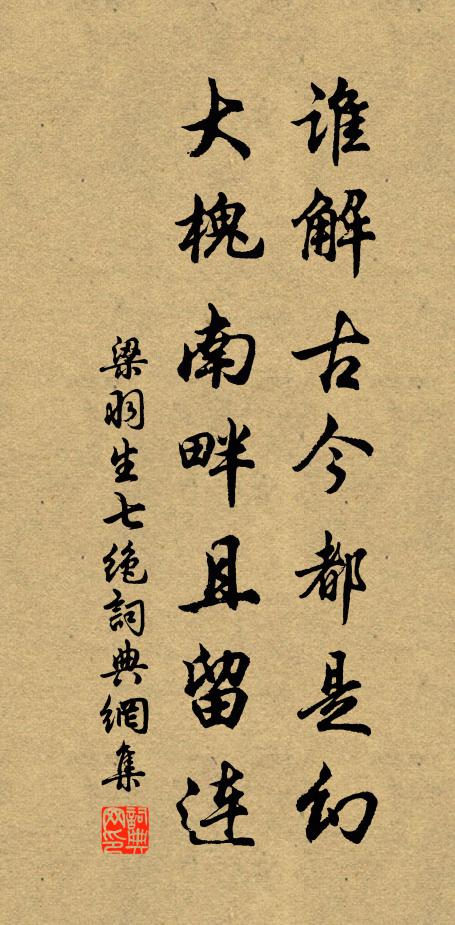 誰解古今都是幻
大槐南畔且留連
梁羽生七绝詞典網集
詞典网印